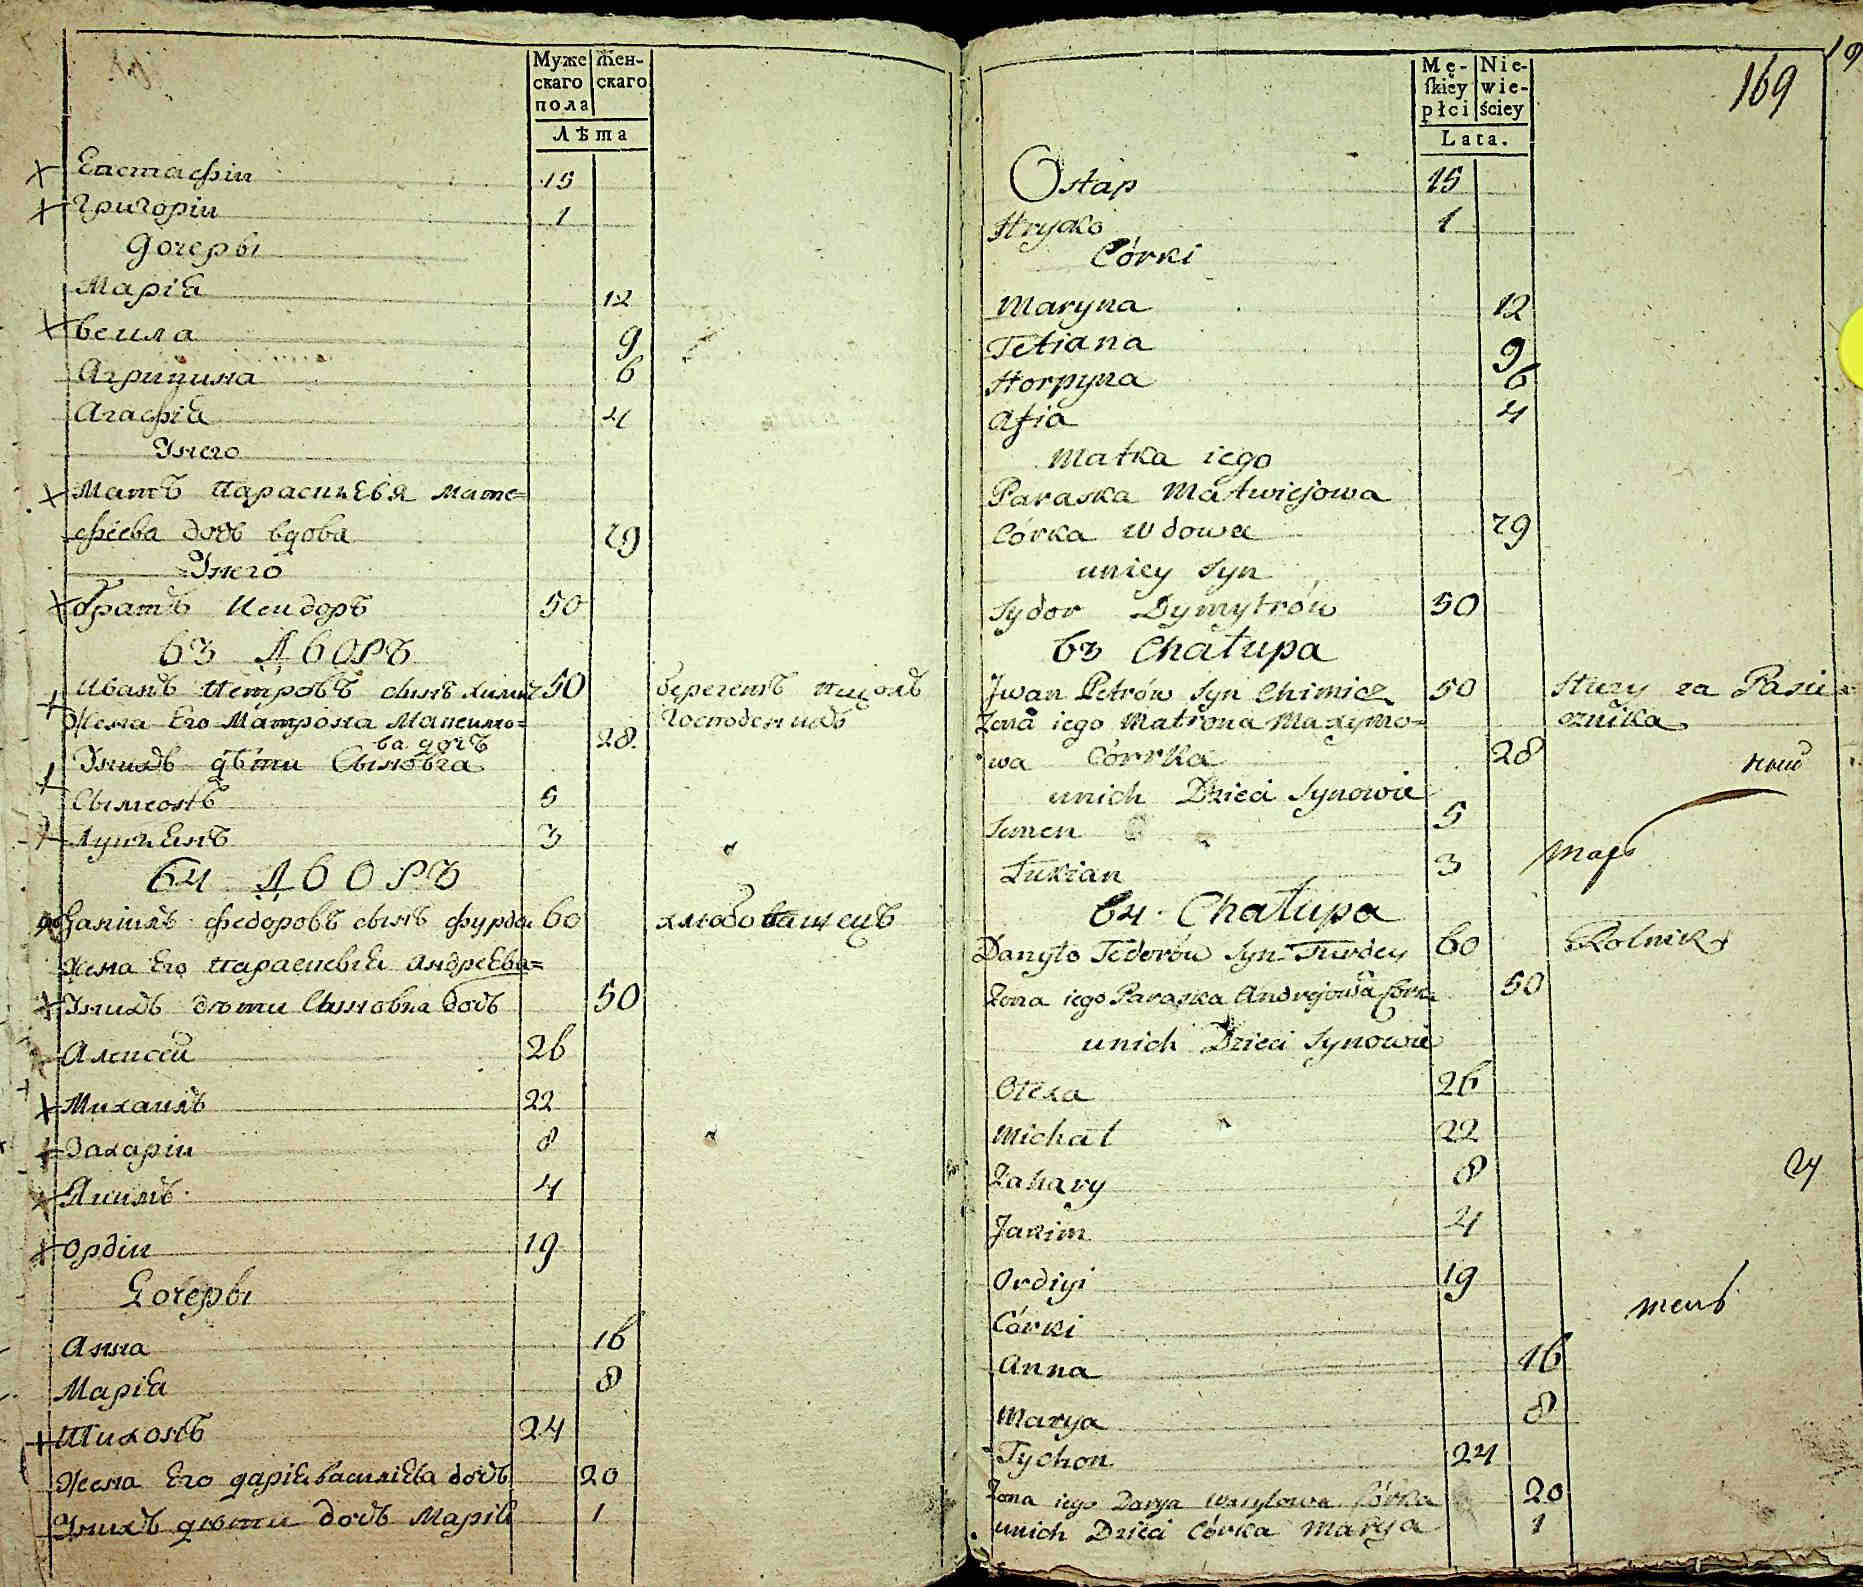 Муже Жен-
скаго скаго
пола
Лѣта
Евстафіи 15
Григоріи 1
Дочеры
Маріа 12
9
Агрипина 6
Агафіа 4
Унего
Мать Парасцкевія Мате-
фѣева дочь вдова 79
Унего
братъ Исидоръ 50
63 Дворъ
Иванъ Петровъ сынъ 50 бережетъ пщолъ
Жена Его Матрона Максимо- Господскихъ
ва дочъ 28
Унихъ дѣти Сыновѣа
Сымеонъ 5
Лукіанъ 3
64 Дворъ
Даніилъ Федоровъ сынъ Фурды 60
Жена Его Параскевіа Андрѣева-
Унихъ дѣти Сыновѣа дочь 50
Алексѣй 26
Михаилъ 22
Захаріи 8
Якимъ 4
Ордіи 19
Дочеры
Анна 16
Маріа 8
Тихонъ 24
Жена Его Даріа Василіева дочь 20
Унихъ дѣти дочь Маріа 1
Mę- Nie-
skiey wie-
płci ściey
Lata.
169
Ostap 15
Hryćko 1
Córki
Maryna 12
Tetiana 9
Horpyna 6
Afia 4
Matka iego
Paraska Matwiejowa
Córka wdowa 79
uniey Syn
Sydor Dymytrów 50
63 Chałupa
Jwan Petrów Syn Chimicz 50 Służy za Pasie
Zona iego Matrona Maxymo- cznika
wa Córrka 28
unich Dzieci Synowie
Semen 5
Łukian 3
64. Chałupa
Danyło Fedorów Syn Furdey 60 Rolnik
Zona iego Paraska Andrejowa Córka 50
unich Dzieci Synowie
Olexa 26
Michał 22
Zahary 8
Jakim 4
Ordiyi 19
Córki
Anna 16
Marya 8
Tychon 24
Zona iego Darya Wasylowa Córka 20
unich Dzieci Córka Marya 1